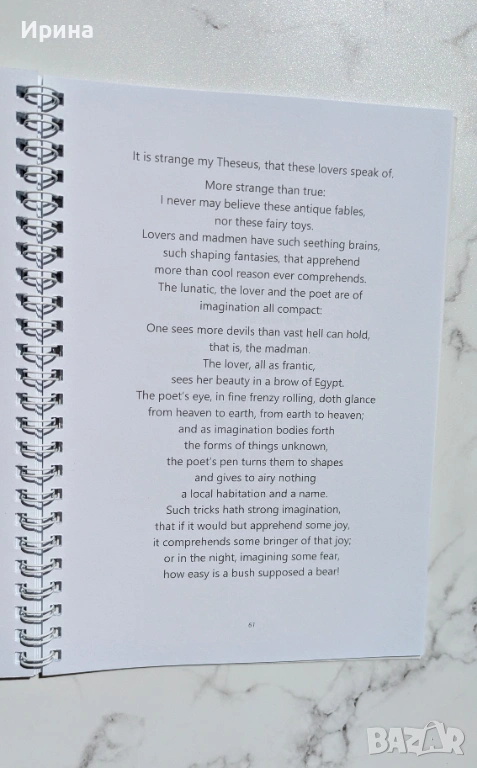 Ирина
It is strange my Theseus, that these lovers speak of.
More strange than true:
I never may believe these antique fables,
nor these fairy toys.
Lovers and madmen have such seething brains,
such shaping fantasies, that apprehend
more than cool reason ever comprehends.
The lunatic, the lover and the poet are of
imagination all compact:
One sees more devils than vast hell can hold,
that is, the madman.
The lover, all as frantic,
sees her beauty in a brow of Egypt.
The poet's eye, in fine frenzy rolling, doth glance
from heaven to earth, from earth to heaven;
and as imagination bodies forth
the forms of things unknown,
the poet's pen turns them to shapes
and gives to airy nothing
a local habitation and a name.
Such tricks hath strong imagination,
that if it would but apprehend some joy,
it comprehends some bringer of that joy;
or in the night, imagining some fear,
how easy is a bush supposed a bear!
61
BAZAR